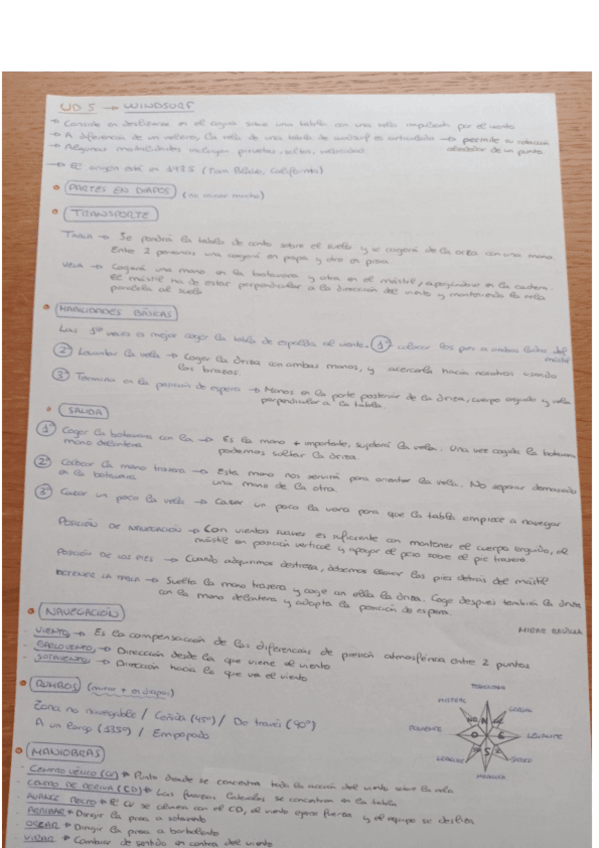 UD 5 → WINDSURF
→ Consiste en deslizarse en el agua sobre una tabla con una vela impulsada por el viento
→ A diferencia de un velero, la vela de una tabla de windsurf es articulada → permite su rotación
alrededor de un punto.
→ Algunas modalidades incluyen piruetas, saltos, velocidad
→ El origen está en 1935 (Tom Blake, California)
PARTES EN DIAPOS (no entran mucho)
TRANSPORTE
TABLA → Se pondrá la tabla de canto sobre el suelo y se cogerá de la orza con una mano.
Entre 2 personas una cogerá en popa y otra en proa.
VELA → Cogerá una mano en la botavara y otra en el mástil, apoyándola en la cadera.
El mástil ha de estar perpendicular a la dirección del viento y manteniendo la vela
paralela al suelo
HABILIDADES BÁSICAS
Las 1ª veces es mejor coger la tabla de espalda al viento. 1º colocar los pies a ambos lados del
mástil
2º Levantar la vela → Coger la driza con ambas manos, y acercarla hacia nosotros usando
los brazos.
3º Termina en la posición de espera → Manos en la parte posterior de la driza, cuerpo erguido y vela
perpendicular a la tabla.
SALIDA
1º Coger la botavara con la → Es la mano + importante, sujetará la vela. Una vez cogida la botavara
mano delantera podemos soltar la driza.
2º Colocar la mano trasera → Esta mano nos servirá para orientar la vela. No separar demasiado
en la botavara una mano de la otra.
3º Cazar un poco la vela → Cazar un poco la vara para que la tabla empiece a navegar
POSICIÓN DE NAVEGACIÓN → Con vientos suaves es suficiente con mantener el cuerpo erguido, el
mástil en posición vertical y apoyar el peso sobre el pie trasero
POSICIÓN DE LOS PIES → Cuando adquirimos destreza, debemos llevar los pies detrás del mástil
DETENER LA TABLA → Suelto la mano trasera y coge con ella la driza. Coge después también la driza
con la mano delantera y adopta la posición de espera.
NAVEGACIÓN
MIRAR BRÚJULA
- VIENTO → Es la compensación de las diferencias de presión atmosférica entre 2 puntos
- BARLOVENTO → Dirección desde la que viene el viento
- SOTAVENTO → Dirección hacia la que va el viento
RUMBOS (mirar + en diapos)
Zona no navegable / Ceñida (45º) / De través (90º)
A un largo (135º) / Empopada
TRAMONTANA
MISTRAL
GREGAL
N
PONIENTE
O
E
LEVANTE
S
SIROCO
MANIOBRAS
- CENTRO VÉLICO (CV) → Punto donde se concentra toda la acción del viento sobre la vela
- CENTRO DE DERIVA (CD) → Las fuerzas laterales se concentran en la tabla
- AVANCE RECTO → El CV se alinea con el CD, el viento ejerce fuerza y el equipo se desliza
- ARRIBAR → Dirigir la proa a sotavento
- ORZAR → Dirigir la proa a barlovento
- VIRAR → Cambiar de sentido en contra del viento